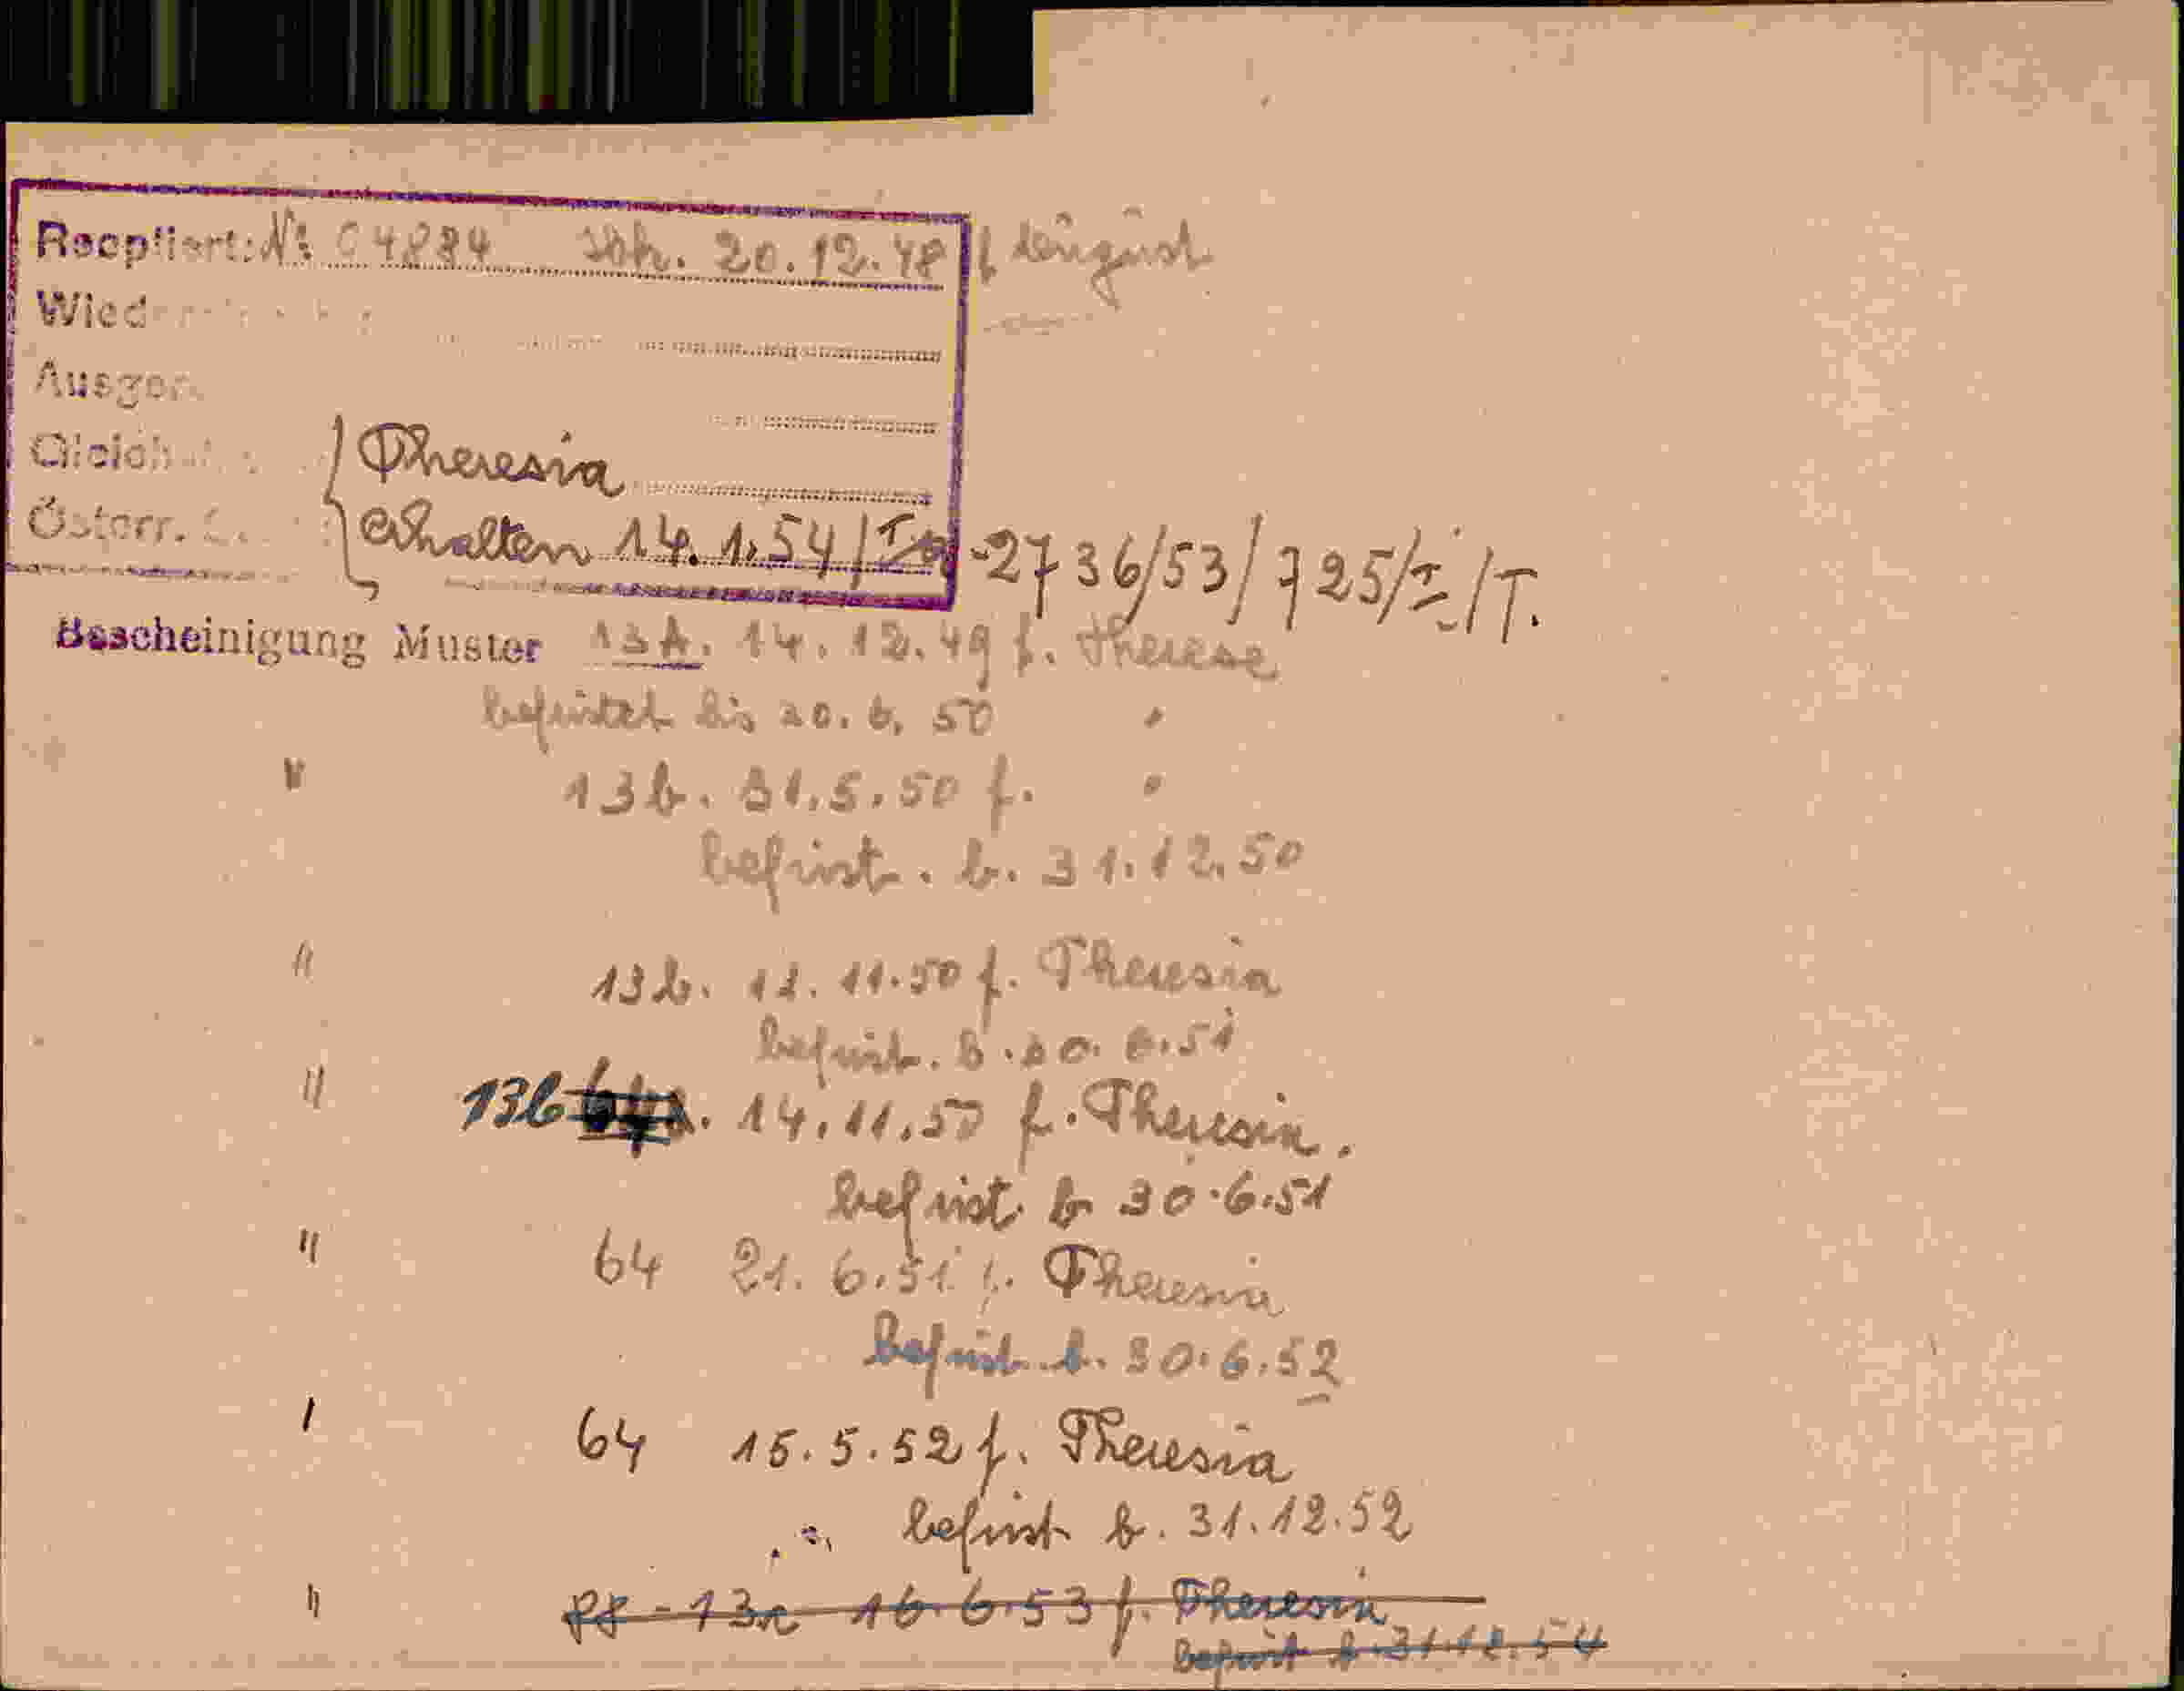 Rezipiert: No 04884 20.12.48 f August
Wied
Ausger
Gleich Theresia
Österr. erhalten 14.1.54/I -2736/53/725/I/T.
Bescheinigung Muster 13A. 14.12.49 f. Therese
befristet bis 30.6.50 "
" 13b. 31.5.50 f. "
befrist. b. 31.12.50
" 13b. 11.50 f. Theresia
befrist. b. 30.6.51
" 13b 14.11.50 f. Theresia.
befrist. b 30.6.51
" 64 21.6.51 f. Theresia
befrist. b. 30.6.52
" 64 15.5.52 f. Theresia
befrist b. 31.12.52
" 13a 16.6.53 f. Theresia
befrist b. 31.12.54